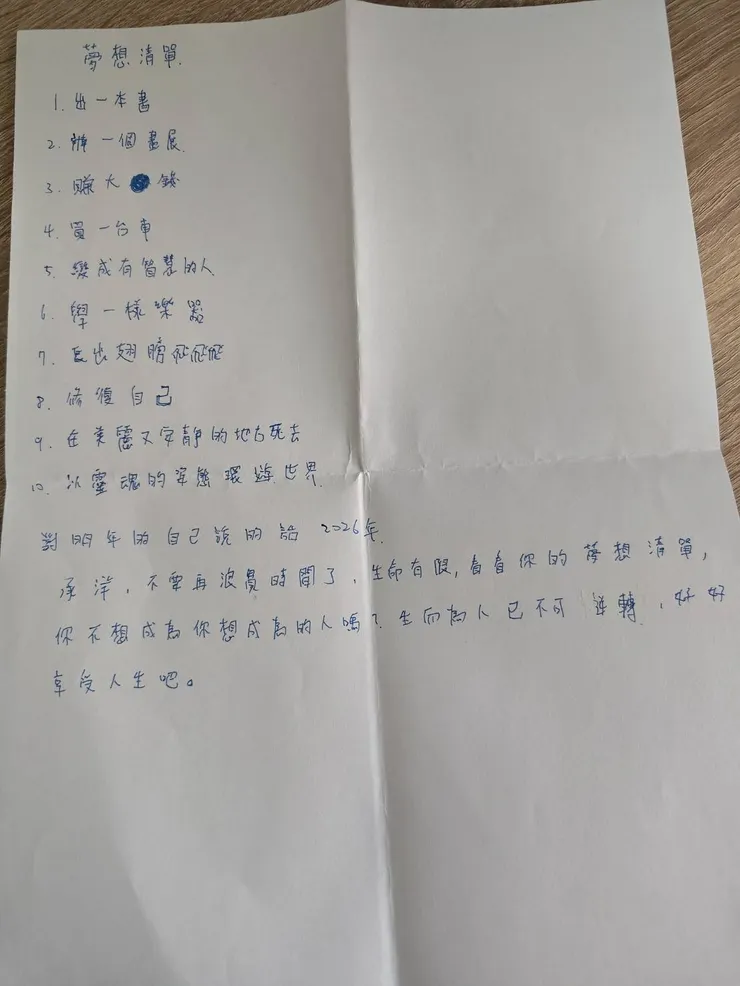 夢想清單
1. 出一本書
2. 辦一個畫展
3. 賺大錢
4. 買一台車
5. 變成有智慧的人
6. 學一樣樂器
7. 長出翅膀飛飛飛
8. 修復自己
9. 在美麗又安靜的地方死去
10. 以靈魂的姿態環遊世界
對明年的自己說的話 2026年
承洋，不要再浪費時間了，生命有限，看看你的夢想清單，
你不想成為你想成為的人嗎？生而為人已不可逆轉，好好
享受人生吧。